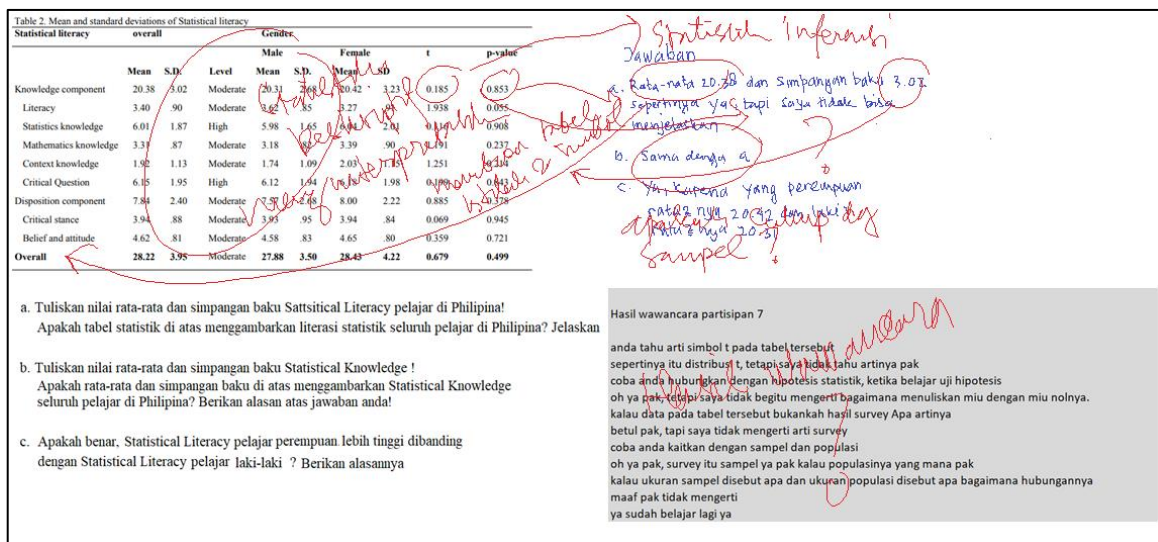 Table 2. Mean and standard deviations of Statistical literacy
Statistical literacy overall Gender
Male Female t p-value
Mean S.D. Level Mean S.D. Mean SD
Knowledge component 20.38 3.02 Moderate 20.31 2.68 20.42 3.23 0.185 0.853
Literacy 3.40 .90 Moderate 3.62 .85 3.27 1.938 0.055
Statistics knowledge 6.01 1.87 High 5.98 1.65 2.01 0.908
Mathematics knowledge 3.31 .87 Moderate 3.18 3.39 .90 1.191 0.237
Context knowledge 1.92 1.13 Moderate 1.74 1.09 2.03 1.15 1.251 0.214
Critical Question 6.15 1.95 High 6.12 1.94 6.18 1.98
Disposition component 7.84 2.40 Moderate 7.57 2.68 8.00 2.22 0.885 0.378
Critical stance 3.94 .88 Moderate 3.93 .95 3.94 .84 0.069 0.945
Belief and attitude 4.62 .81 Moderate 4.58 .83 4.65 .80 0.359 0.721
Overall 28.22 3.95 Moderate 27.88 3.50 28.43 4.22 0.679 0.499
statistika
deskriptif
menginterpretasikan
membaca tabel
Statistik Inferensi
Jawaban
a. Rata-rata 20.38 dan simpangan baku 3.02
sepertinya ya, tapi saya tidak bisa
menjelaskan
b. Sama dengan a
c. Ya, karena yang perempuan
rata2 nya 20.42 dan laki2
rata2nya 20.31
apakah cukup dg
sampel ?
a. Tuliskan nilai rata-rata dan simpangan baku Sattsitical Literacy pelajar di Philipina!
Apakah tabel statistik di atas menggambarkan literasi statistik seluruh pelajar di Philipina? Jelaskan
b. Tuliskan nilai rata-rata dan simpangan baku Statistical Knowledge !
Apakah rata-rata dan simpangan baku di atas menggambarkan Statistical Knowledge
seluruh pelajar di Philipina? Berikan alasan atas jawaban anda!
c. Apakah benar, Statistical Literacy pelajar perempuan lebih tinggi dibanding
dengan Statistical Literacy pelajar laki-laki ? Berikan alasannya
Hasil wawancara partisipan 7
anda tahu arti simbol t pada tabel tersebut
sepertinya itu distribusi t, tetapi saya tidak tahu artinya pak
coba anda hubungkan dengan hipotesis statistik, ketika belajar uji hipotesis
oh ya pak, tetapi saya tidak begitu mengerti bagaimana menuliskan miu dengan miu nolnya.
kalau data pada tabel tersebut bukankah hasil survey Apa artinya
betul pak, tapi saya tidak mengerti arti survey
coba anda kaitkan dengan sampel dan populasi
oh ya pak, survey itu sampel ya pak kalau populasinya yang mana pak
kalau ukuran sampel disebut apa dan ukuran populasi disebut apa bagaimana hubungannya
maaf pak tidak mengerti
ya sudah belajar lagi ya
Hasil wawancara